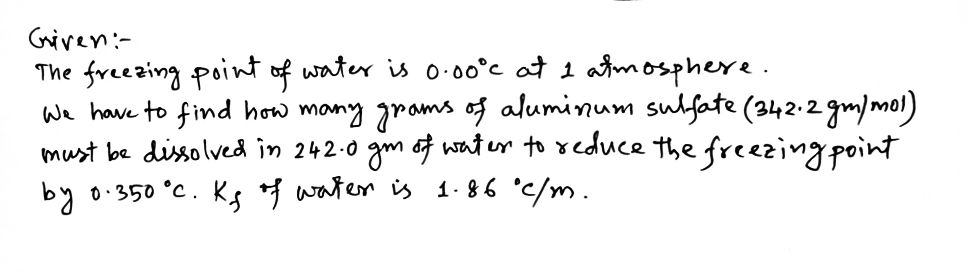 Given:-
The freezing point of water is 0.00°c at 1 atmosphere.
We have to find how many grams of aluminum sulfate (342.2 gm/mol)
must be dissolved in 242.0 gm of water to reduce the freezing point
by 0.350 °c. Kf of water is 1.86 °c/m.